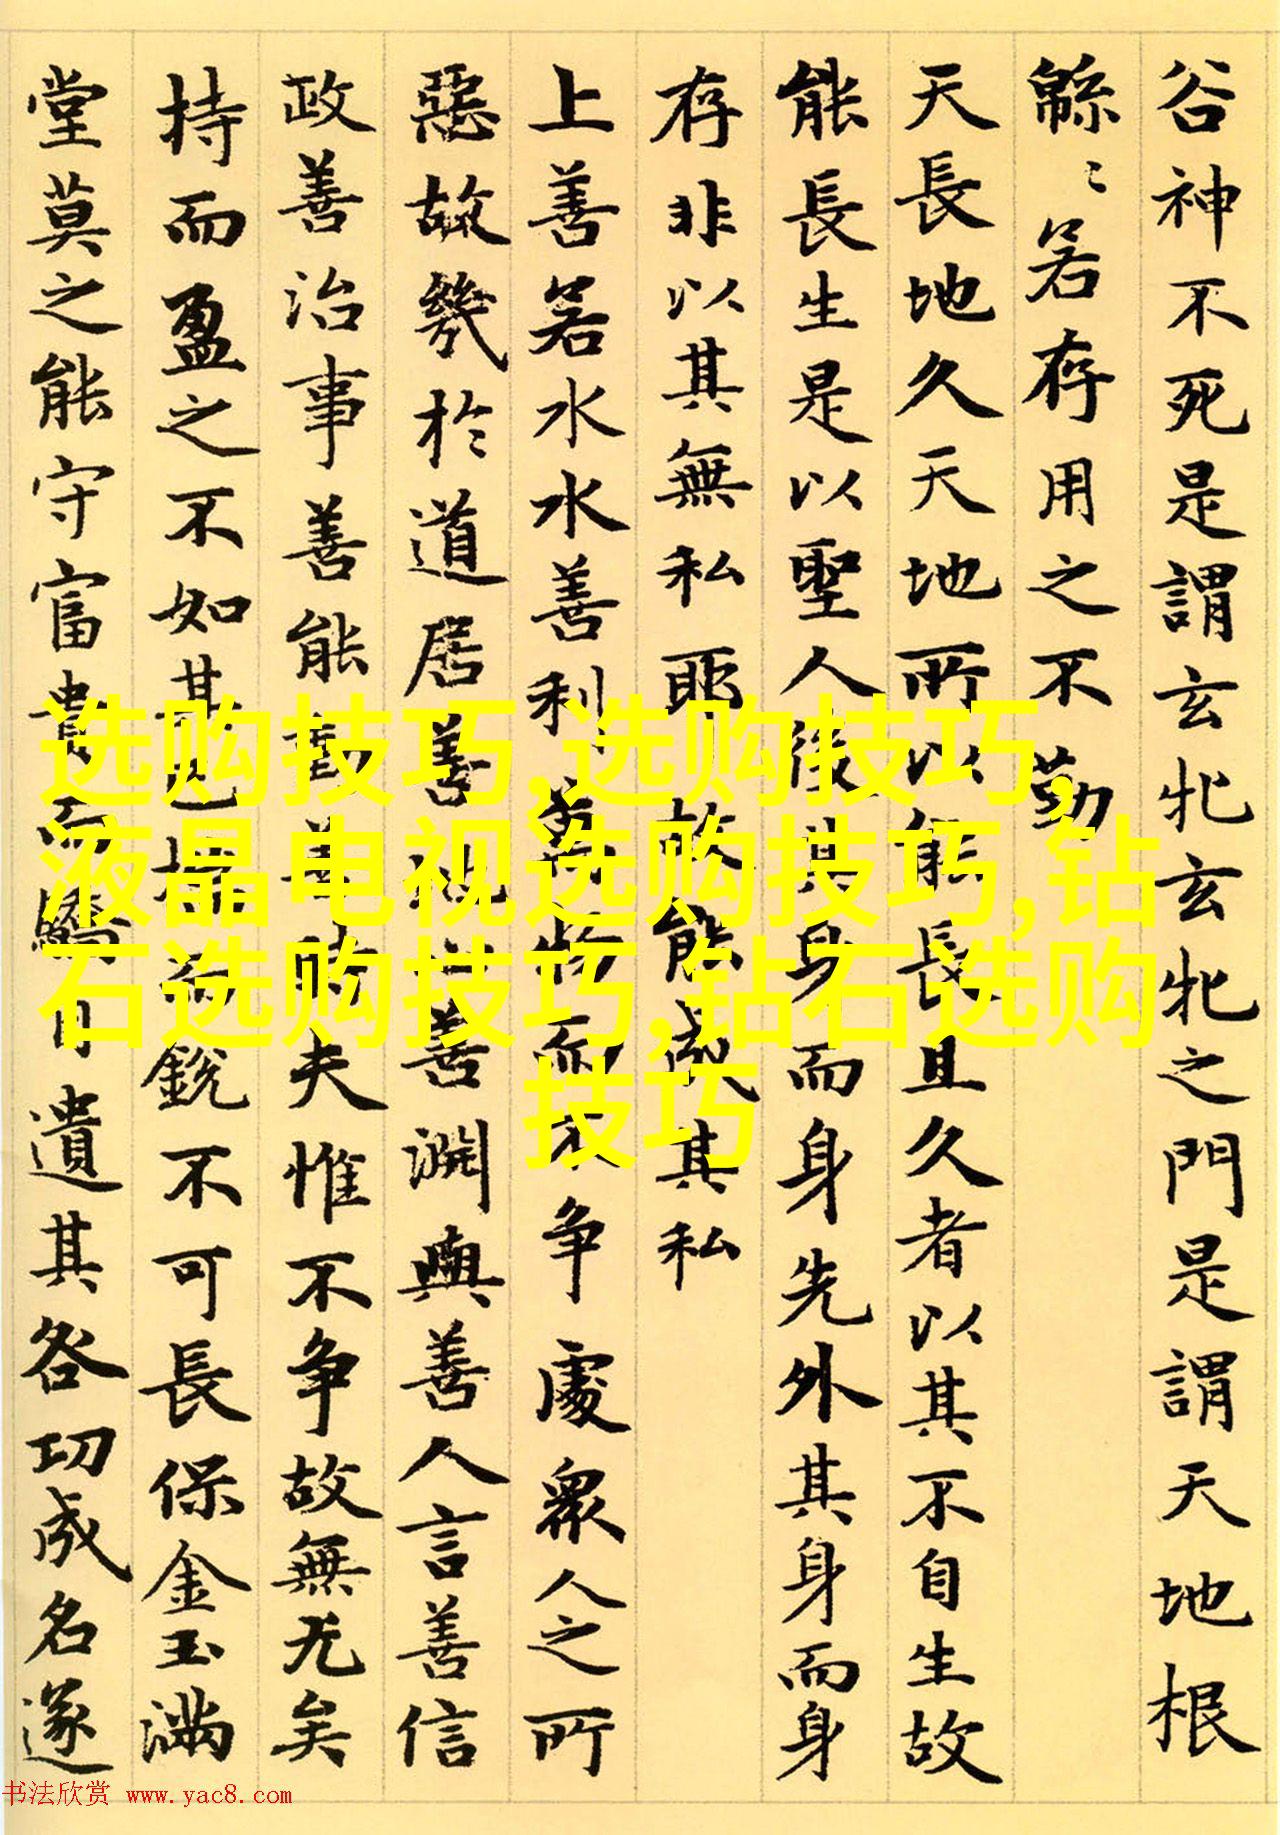 谷神不死是謂玄牝玄牝之門是謂天地根
緜〻若存用之不勤
天長地久天地所以能長且久者以其不自生故
能長生是以聖人後其身而身先外其身而身
存非以其無私耶故能成其私
上善若水水善利萬物而不争處衆人之所
惡故幾於道居善地心善淵與善人言善信
政善治事善能動善時夫惟不争故無尤矣
持而盈之不如其已揣而銳不可長保金玉滿
堂莫之能守富貴而驕自遺其咎功成名遂
选购技巧,选购技巧,
液晶电视选购技巧,钻
石选购技巧,钻石选购
技巧
书法欣赏 www.yac8.com